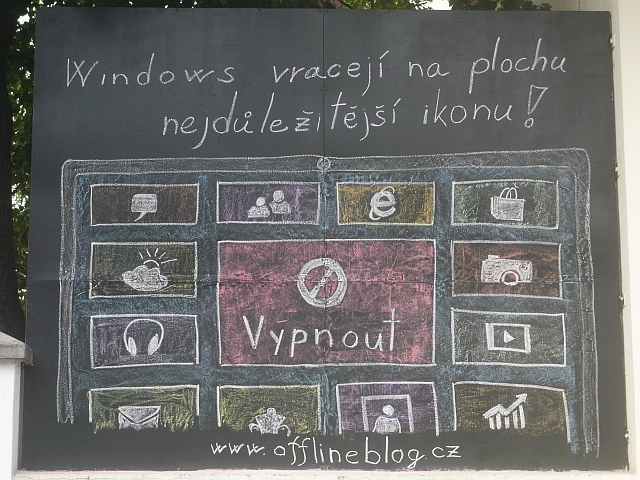 Windows vracejí na plochu
nejdůležitější ikonu!
Vypnout
www.offlineblog.cz